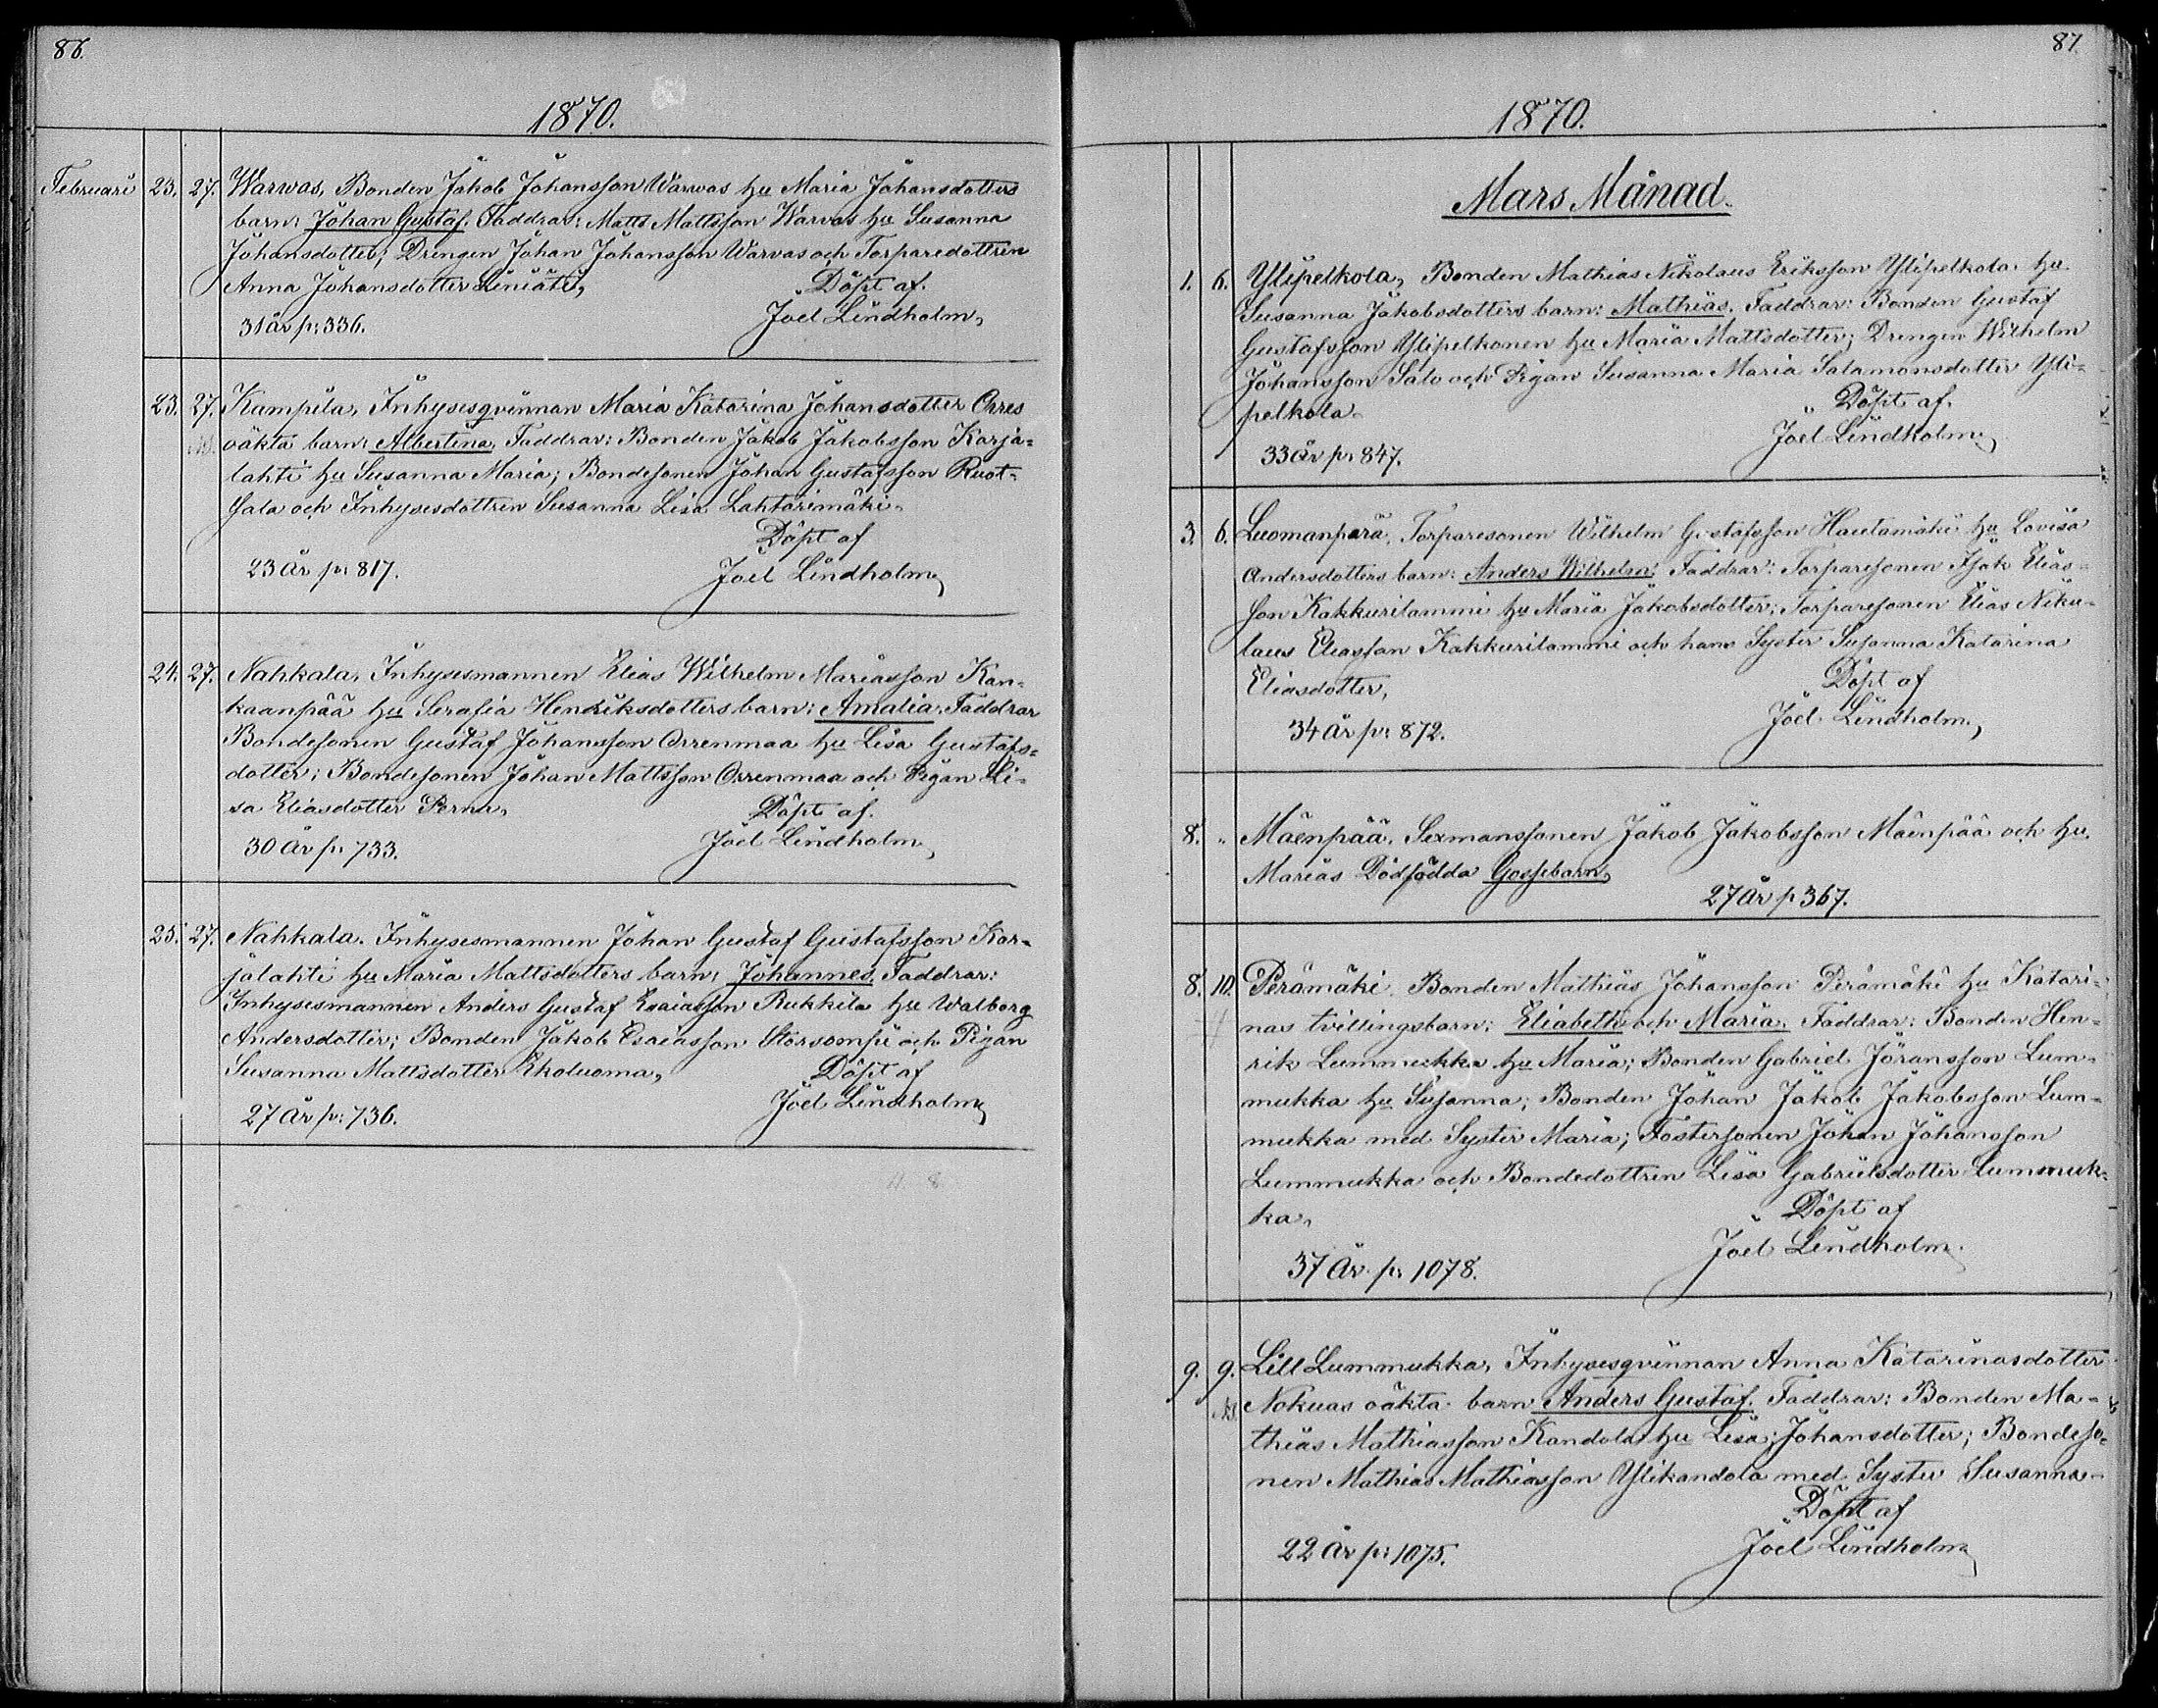 86.
1870.
Februari 23. 27. Warwas, Bonden Jakob Johansson Warwas hu Maria Johansdotters
barn: Johan Gustaf. Faddrar: Matts Mattsson Warwas hu Susanna
Johansdotter; Drengen Johan Johansson Warwas och Torparedottren
Anna Johansdotter Liniäti, Döpt af.
31 år p: 336. Joel Lindholm,
23. 27. Kampila, Inhysesqvinnan Maria Katarina Johansdotter Orres
oäkta barn: Albertina, Faddrar: Bonden Jakob Jakobsson Karja=
lahti hu Susanna Maria; Bondesonen Johan Gustafsson Ruot=
sala och Inhysesdottren Susanna Lisa Lahtarimäki.
Döpt af
23 år p: 817. Joel Lindholm,
24. 27. Nahkala, Inhysesmannen Elias Wilhelm Mariasson Kan=
kaanpää hu Serafia Henriksdotters barn: Amalia. Faddrar
Bondesonen Gustaf Johansson Orrenmaa hu Lisa Gustafs=
dotter; Bondesonen Johan Mattsson Orrenmaa och Pigan Li=
sa Eliasdotter Perna, Döpt af.
30 år p: 733. Joel Lindholm,
25. 27. Nahkala. Inhysesmannen Johan Gustaf Gustafsson Kar=
jalahti hu Maria Mattsdotters barn: Johannes. Faddrar:
Inhysesmannen Anders Gustaf Esaiasson Rukkila hu Walborg
Andersdotter; Bonden Jakob Esaiasson Storsompi och Pigan
Susanna Mattsdotter Eholuoma, Döpt af
27 år p: 736. Joel Lindholm,
87.
1870.
Mars Månad.
1. 6. Ylipelkola, Bonden Mathias Nikolaus Eriksson Ylipelkola hu
Susanna Jakobsdotters barn: Mathias. Faddrar: Bonden Gustaf
Gustafsson Ylipelkonen hu Maria Mattsdotter; Drengen Wilhelm
Johansson Salo och Pigan Susanna Maria Salamonsdotter Yli=
pelkola. Döpt af.
33 år p: 847. Joel Lindholm,
3. 6. Luomanperä, Torparesonen Wilhelm Gustafsson Hautamäki hu Lovisa
Andersdotters barn: Anders Wilhelm. Faddrar: Torparesonen Isak Elias=
son Kakkurilammi hu Maria Jakobsdotter; Torparesonen Elias Niko=
laus Eliasson Kakkurilammi och hans Syster Susanna Katarina
Eliasdotter, Döpt af
34 år p: 872. Joel Lindholm,
8. " Mäenpää, Sexmanssonen Jakob Jakobsson Mäenpää och hu.
Marias Dödfödda Gossebarn,
27 år p 367.
8. 10. Perämäki. Bonden Mathias Johansson Perämäki hu Katari=
nas tvillingsbarn: Eliabeth och Maria. Faddrar: Bonden Hen=
rik Lummukka hu Maria; Bonden Gabriel Jöransson Lum=
mukka hu Susanna; Bonden Johan Jakob Jakobsson Lum=
mukka med Syster Maria; Fostersonen Johan Johansson
Lummukka och Bondedottren Lisa Gabrielsdotter Lummuk=
ka, Döpt af
37 år p: 1078. Joel Lindholm.
9. 9. Lill Lummukka, Inhysesqvinnan Anna Katarinasdotter
Nokuas oäkta barn Anders Gustaf. Faddrar: Bonden Ma=
thias Mathiasson Kandola hu Lisa Johansdotter; Bondeso=
nen Mathias Mathiasson Ylikandola med Syster Susanna.
Döpt af
22 år p: 1075. Joel Lindholm,